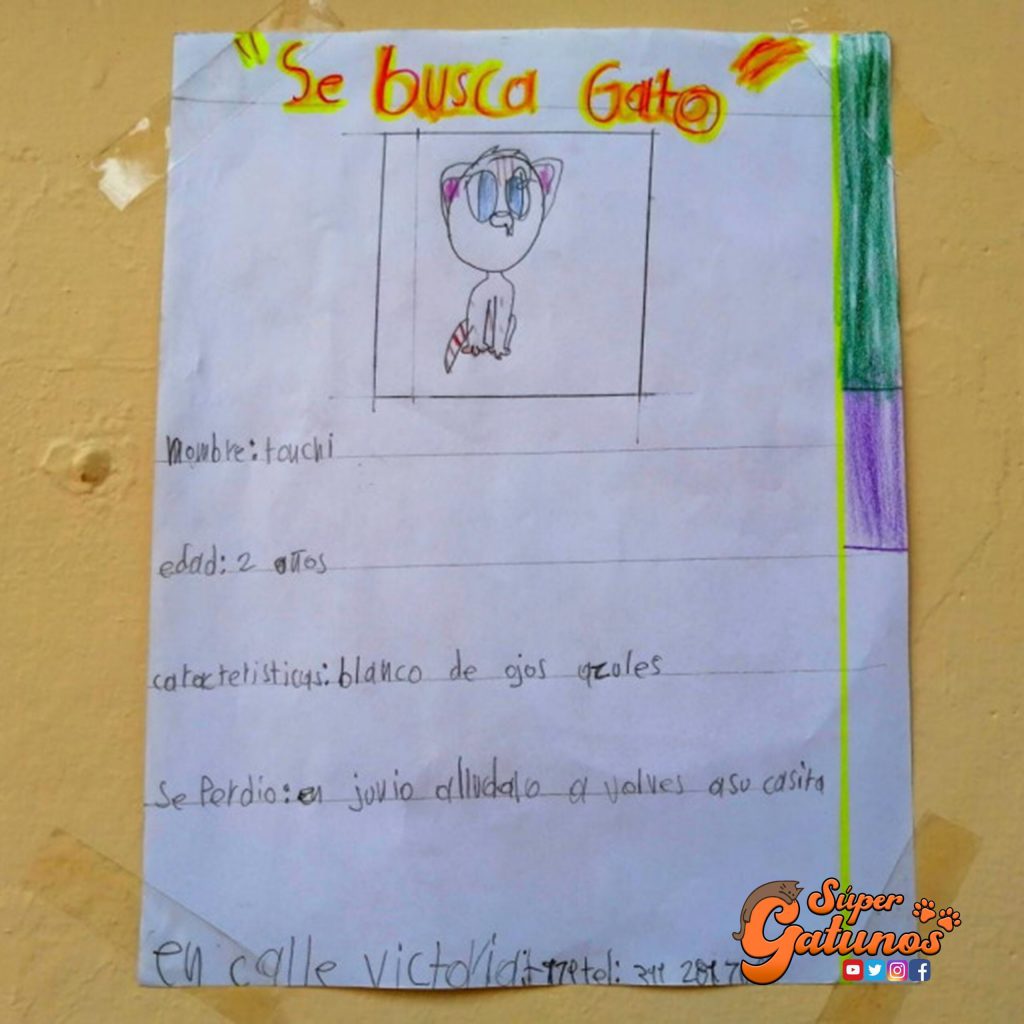 "Se busca Gato"
Nombre: touchi
edad: 2 años
características: blanco de ojos azoles
Se Perdio: en juvio alludalo a volves asu casita
en calle victoria tel: 311 281
Súper
Gatunos